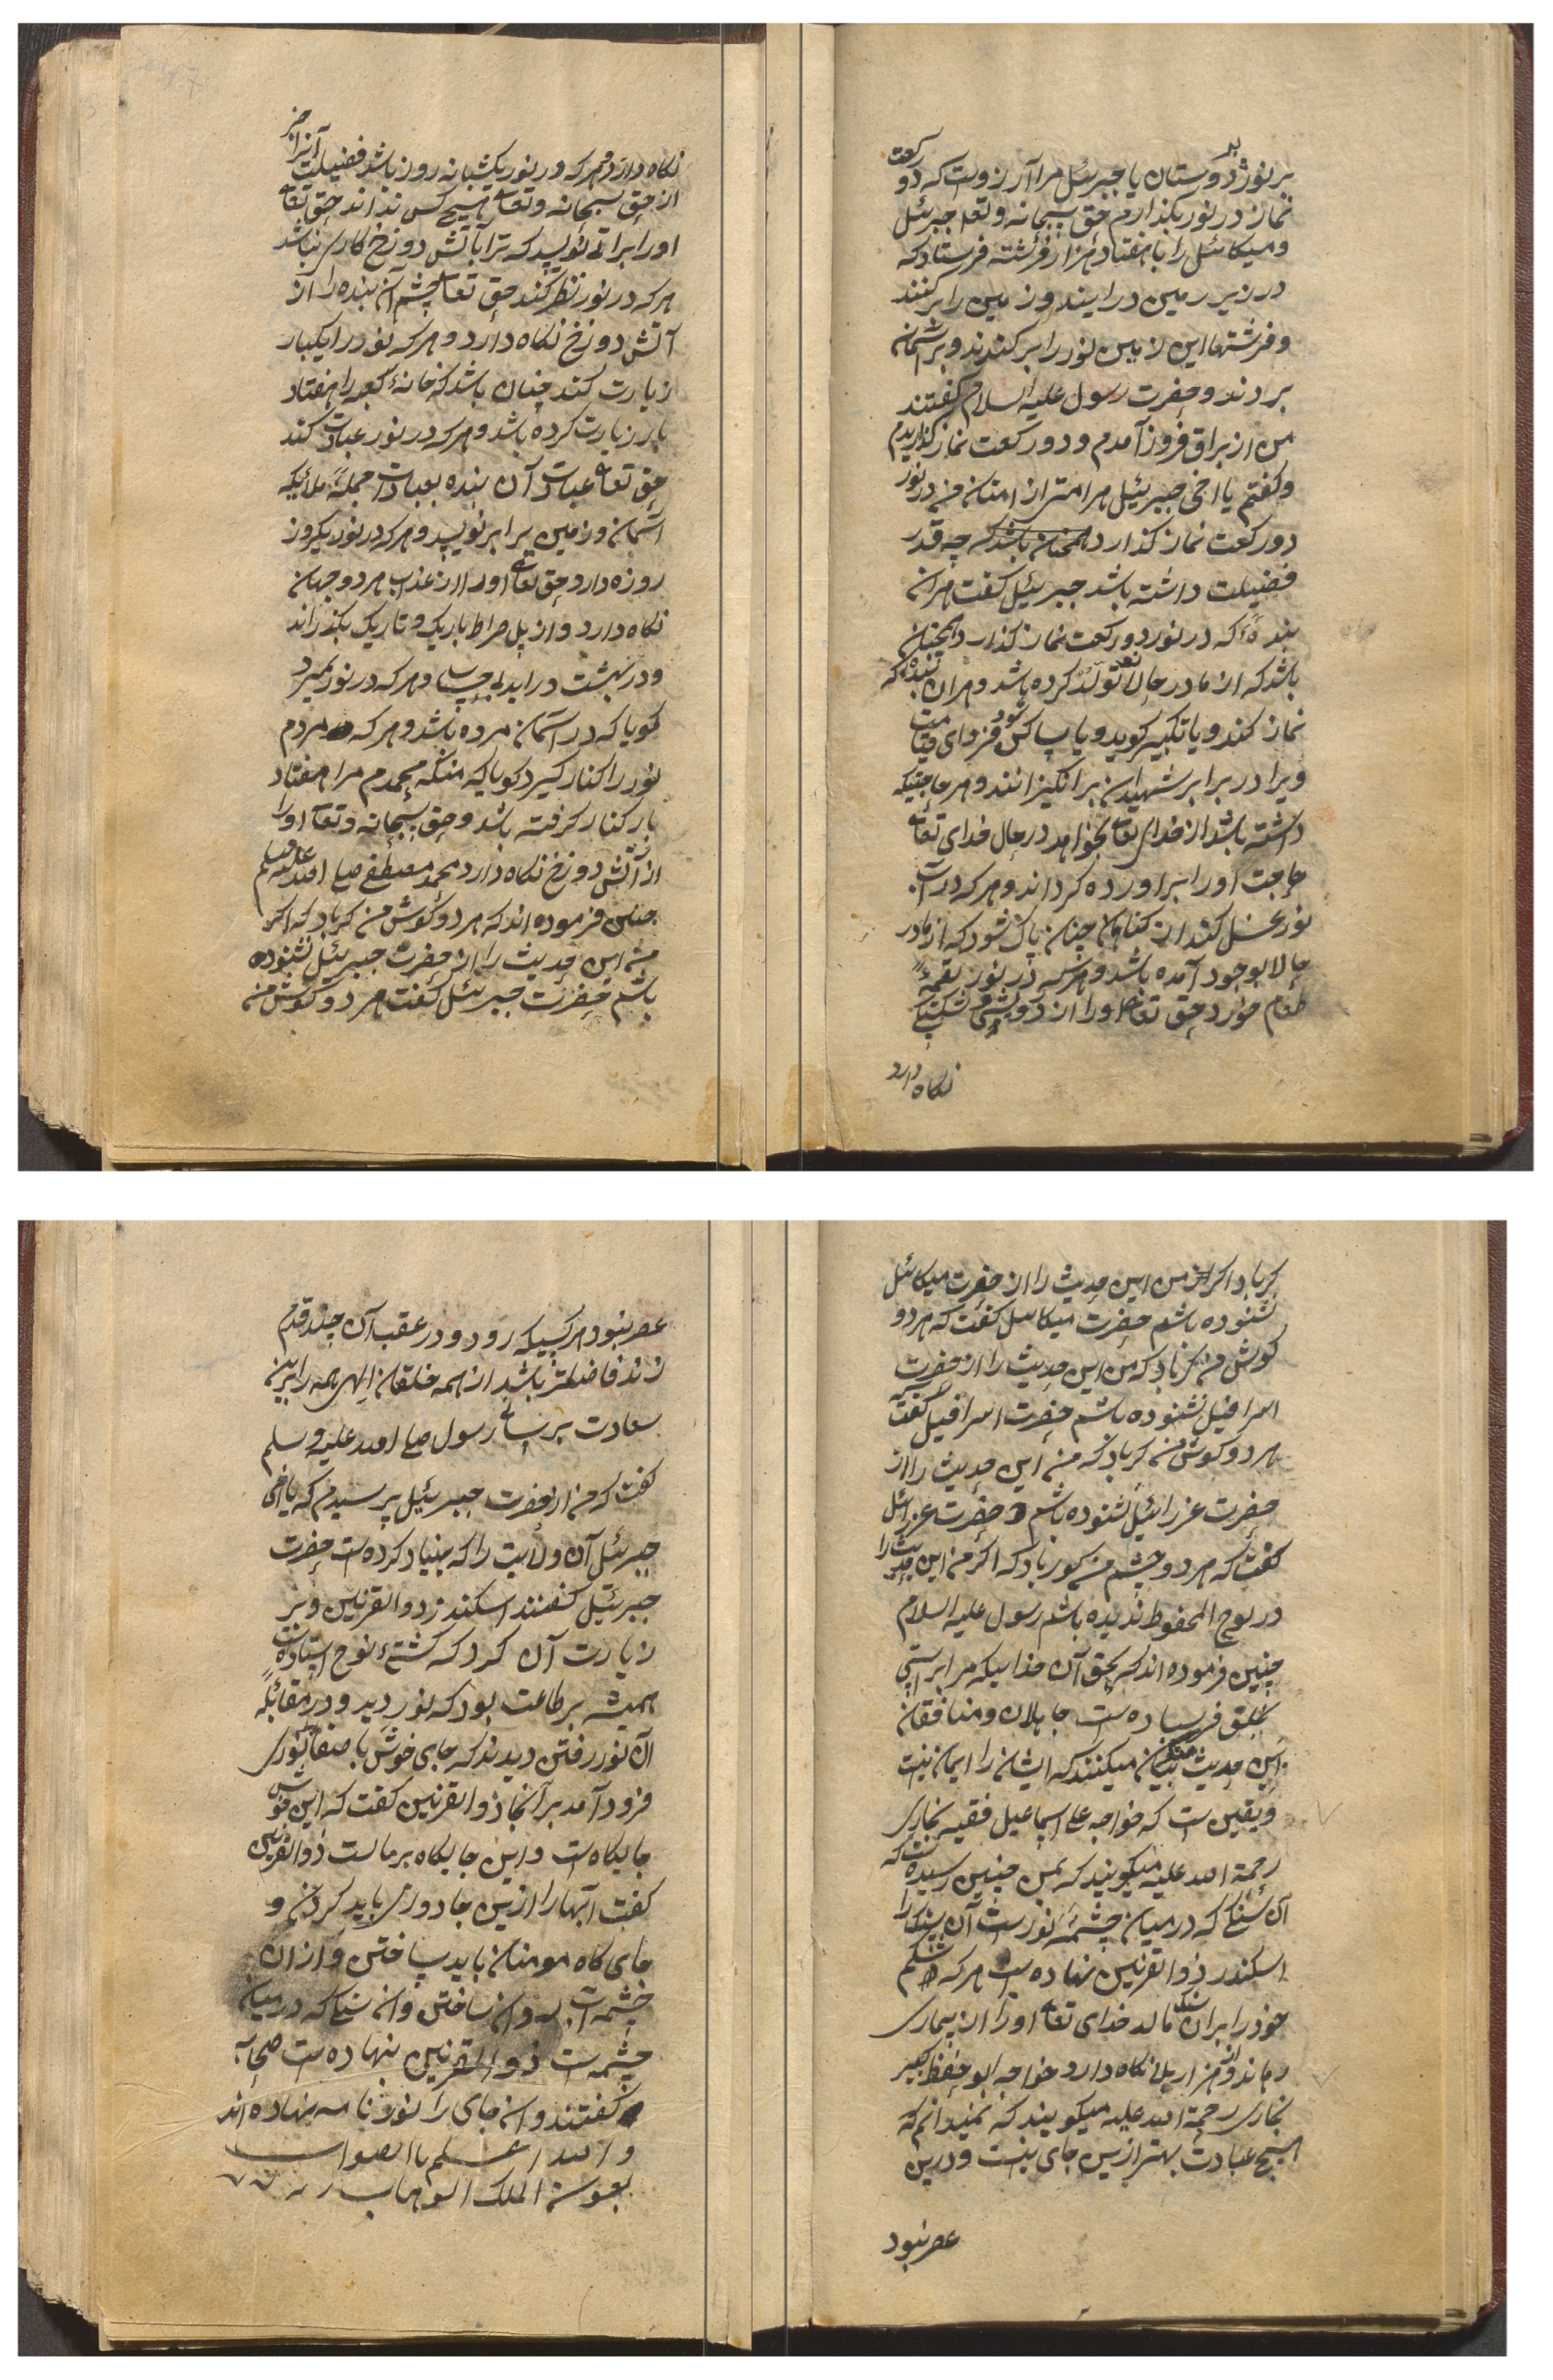 بر نور دوستان یا جبرئیل مرا آرزوست که دو رکعت
نماز در نور بگذارم حق سبحانه وتعا جبرئیل
ومیکائیل را با هفتاد هزار فرشته فرستاد که
در زیر زمین درایند وزمین را برکنند
وفرشتها این زمین نور را برکندند وبر آسمان
بردند وحضرت رسول علیه السلام گفتند
من از براق فروز آمدم ودو رکعت نماز گذاریدم
وگفتم یا اخی جبرئیل مرا امتی از امتان من در نور
دو رکعت نماز گذارد همچنان باشد که چه قدر
فضیلت داشته باشد جبرئیل گفت هران
بندهٔ که در نور دو رکعت نماز گذارد همچنان
باشد که از مادر حالا تولد کرده باشد وهران بندهٔ که
نماز کند ویا تکبیر گوید ویا پاکی فردای قیامت
ویرا در برابر شهیدان برانگیزانند وهر حاجتیکه
داشته باشد از خدای تعا بخواهد در حال خدای تعا
حاجت اورا براورده گرداند وهر که در آب
نور غسل کند از گناهان چنان پاک شود که از مادر
حالا بوجود آمده باشد وهر که در نور لقمهٔ
طعام خورد حق تعا اورا از درویشی
نگاه دارد
نگاه دارد وهر که در نور یکشبانه روز باشد فضیلت آنرا
از حق سبحانه وتعا هیچ کس نداند حق تعا
اورا براتی نویسد که ترا باآتش دوزخ کاری نباشد
هر که در نور نظر کند حق تعا چشم آن بنده را از
آتش دوزخ نگاه دارد وهر که نور را یکبار
زیارت کند چنان باشد که خانهٔ کعبه را هفتاد
بار زیارت کرده باشد وهر که در نور عبادت کند
حق تعا عبادت آن بنده بعبادت جملهٔ ملائیکه
آسمان وزمین برابر نویسد وهر که در نور یکروز
روزه دارد حق تعا اورا از عذاب هر دو جهان
نگاه دارد واز پل صراط باریک وتاریک بگذراند
ودر بهشت دراید بی حساب وهر که در نور بمیرد
گویا که در آسمان مرده باشد وهر که مردم
نور را کنار گیرد گویا که منکه محمدم مرا هفتاد
بار کنار گرفته باشد وحق سبحانه وتعا اورا
از آتش دوزخ نگاه دارد محمد مصطفی صلی الله علیه وسلم
چنین فرموده اند که هر دو گوش من کر باد که اگر
من این حدیث را از حضرت جبرئیل نشنوده
باشم حضرت جبرئیل گفت هر دو گوش من
کر باد اگر من این حدیث را از حضرت میکائیل
نشنوده باشم حضرت میکائیل گفت که هر دو
گوش من کر باد که من این حدیث را از حضرت
اسرافیل نشنوده باشم حضرت اسرافیل گفت
هر دو گوش من کر باد که من این حدیث را از
حضرت عزرائیل نشنوده باشم حضرت عزرائیل
گفت که هر دو چشم من کور باد که اگر من این حدیث را
در لوح المحفوظ ندیده باشم رسول علیه السلام
چنین فرموده اند که بحق آن خداییکه مرا براستی
بخلق فرستاده ست جاهلان ومنافقان
این حدیث میکنند که ایشان را ایمان نیست
ویقین ست که خواجه علی اسماعیل فقیه بخاری
رحمة الله علیه میگویند که بمن چنین رسیده است که
آن سنگی که درمیان چشمهٔ نورست آن سنگ را
اسکندر ذوالقرنین نهاده ست هر که شکم
خود را بران سنگ مالد خدای تعا اورا از بیماری
رهاند واز هزار بلا نگاه دارد خواجه ابو حفظ کبیر
بخاری رحمة الله علیه میگویند که نمیدانم که
هیچ عبادت بهتر ازین جای نیست ودرین
عصر نبود
عصر نبود هر کسیکه رود ودر عقب آن چند قدم
زند فاضلتر باشد از همه خلقان الهی همه را برین
سعادت برسانی رسول صلی الله علیه وسلم
گفت که من از حضرت جبرئیل پرسیدم که یا اخی
جبرئیل آن ولایت را که بنیاد کرده ست حضرت
جبرئیل گفتند اسکندر ذوالقرنین وبر
زیارت آن کرد که کشتئ نوح استاده است
همیشه بر طاعت بود که نور دید ودر مقابلهٔ
آن نور رفتن دیدند که جای خوش با صفا
فرود آمد برآنجا ذوالقرنین گفت که این خوش
جایگاه ست واین جایگاه بر ماست ذوالقرنین
گفت آبها را ازین جا دور باید کردن و
جای گاه مومنان باید ساختن وازان
چشمه آب روان ساختن وآن سنگی که درمیان
چشمه ست ذوالقرنین بنهاده ست صحابه
گفتند وآن جای را نور نامه نهاده اند
والله اعلم باالصواب
بعون الملک الوهاب